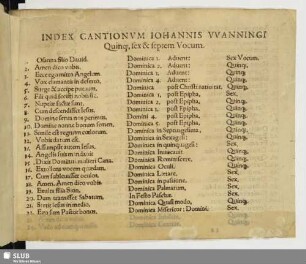 INDEX CANTIONVM IOHANNIS VVANNINGI
Quinq, sex & septem Vocum.
Osanna filio Dauid. Dominica 1. Aduent: Sex Vocum.
2. Amen dico vobis. Dominica 2. Aduent: Quinq.
3. Ecce ego mitto Angelum Dominica 3. Aduent: Quinq.
4. Vox clamantis in deserto. Dominica 4. Aduent: Quinq.
5. Surge & accipe puerum. Dominica post Quinq.
6. Fili quid fecisti nobis sic. Dominica 1. post Epipha. Sex.
7. Nuptiæ factæ sunt. Dominica 2. post Epipha. Quinq.
8. Cum descendisset Iesus. Dominica 3. post Epipha. Quinq.
9. Domine serua nos perimus. Domini 4. post Epipha. Quinq.
10. Domine nonne bonum Semen Dominica 5. post Epipha. Quinq.
11. Simile est regnum cœlorum. Dominica in Septuagesima. Quinq.
12. Vobis datum est. Dominica in Sexagesi: Quinq.
13. Assumpsit autem Iesus. Dominica in quinquagesi: Sex.
14. Angeli Dominica Inuocauit Quinq.
Dominica Reminiscere. Quinq.
vocem quædam. Dominica Oculi. Quinq.
Dominica Lætare. Sex.
18. Amen, Amen dico vobis. Dominica in passione. Sex.
19. Exulta filia Sion. Dominica Palmarum. Sex.
20. Dum transisset Sabatum. In Festo Paschæ. Sex.
21. Stetit Iesus in medio. Dominica Quasimodo. Quinq.
22. Ego sum Pastor bonus. Dominica Misericor: Domini. Sex.
SLUB